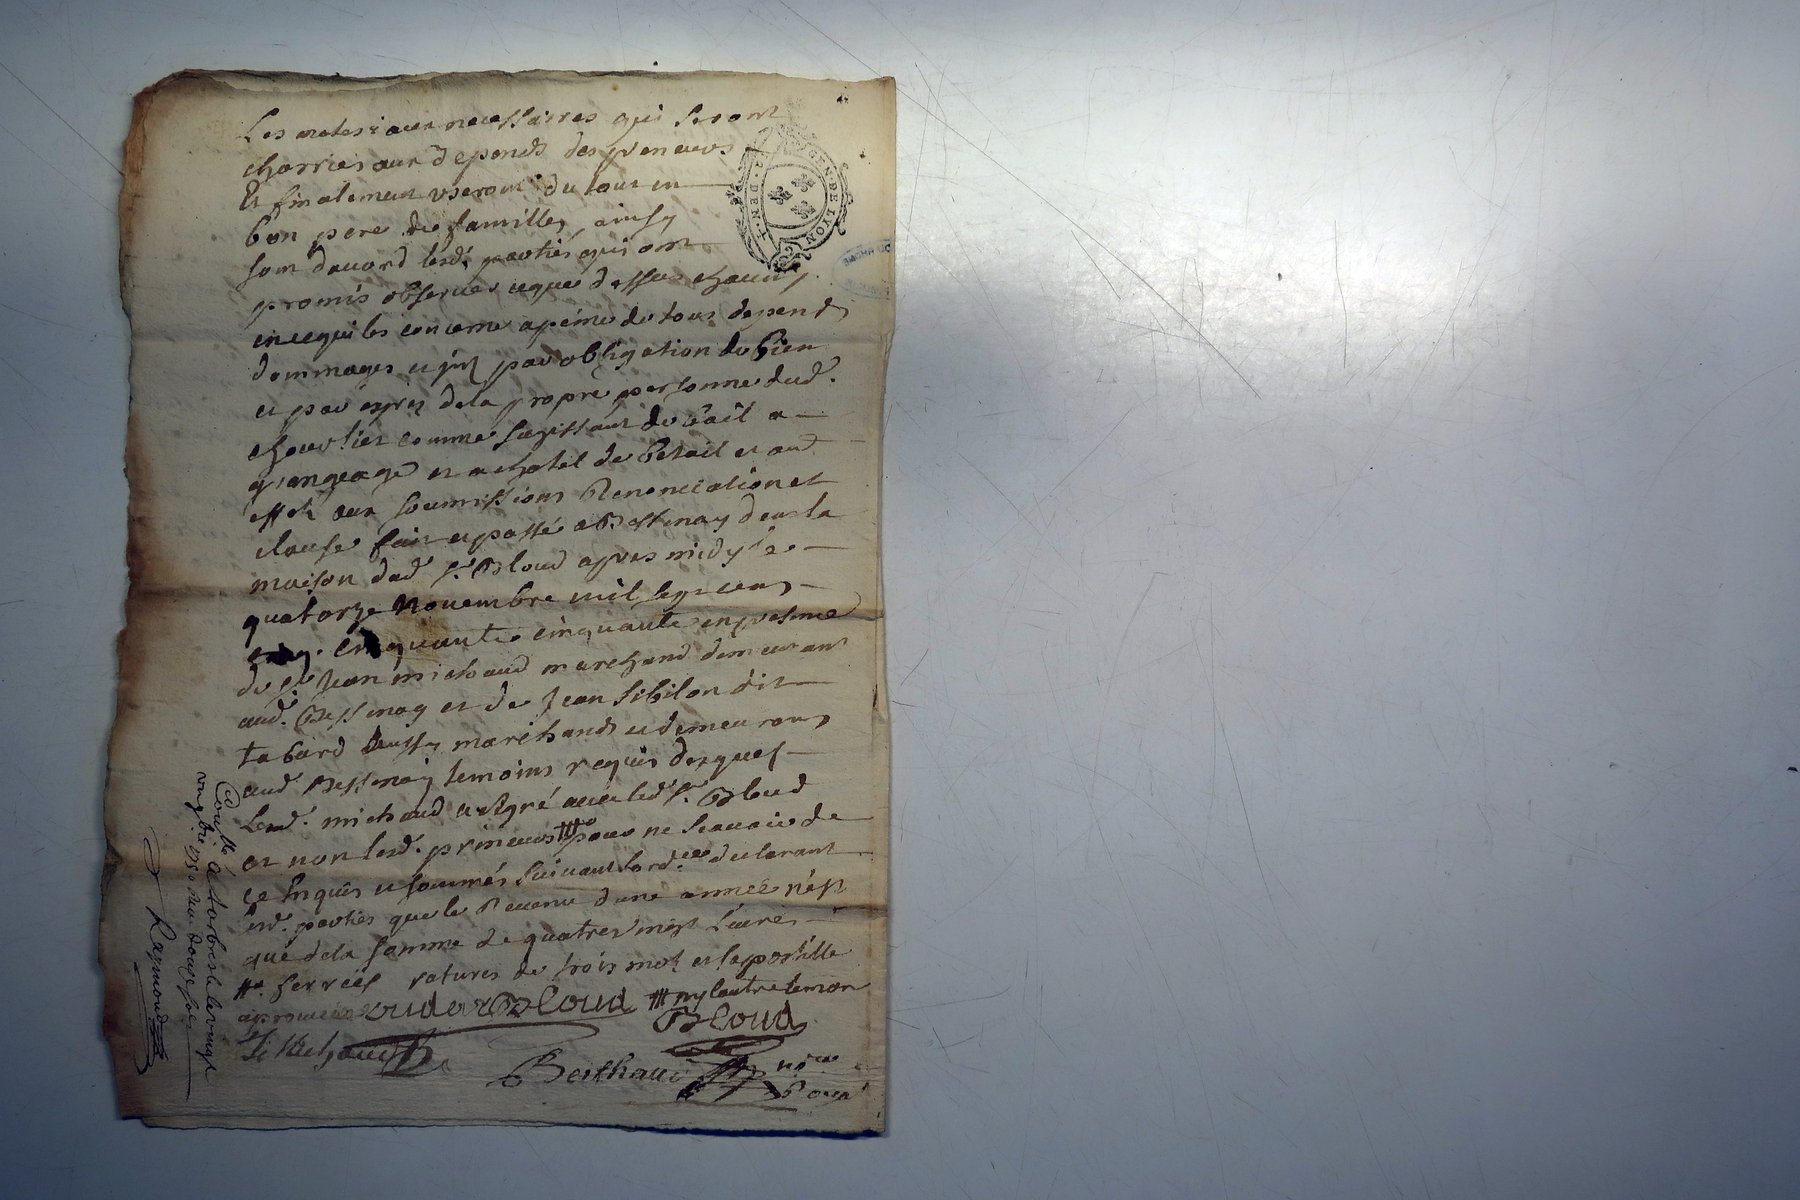 Les materiaux necessaires qui seront
charries aux depends des preneurs
Et finalement useront du tout en
bon pere de famille, ainsy
sont dacord lesd. parties qui ont
promis observer ceque dessus chacun
en cequi les concerne apeine de tous depends
dommages et par obligation de bien
et par expres dela propre personne dud.
comme du bail a
grangeage et a chatel de betail et aud
effet aux soumissions Renonciation et
clause fait et passé a Bessenay dans la
maison dud sr. Bloud apres midy le
quatorze Novembre mil sept cens
cinquante cinquante en presence
de sr Jean michaud marchand demeurant
aud. Bessenay et de Jean Sibilon dit
tabard aussy marchand et demeurant
aud Bessenay temoins requis desquels
Led. michaud a signé avec led sr. Bloud
et non lesd. preneurs ⧻ pour ne scavoir de
ce Enquis et sommés suivant lord.ce declarant
lesd. parties que le Revenu dune année n'est
que dela somme de quatres vingt Livres
ratures de trois mot et lapostille
aprouvée Bloud ⧻ ny lautre temoin
Bloud
Michaud
Berthaud no.re
Royal
GEN. DE LYON
Controllé à Larbresle le vingt
nov.bre 1750 Recu douze sols
Raymond